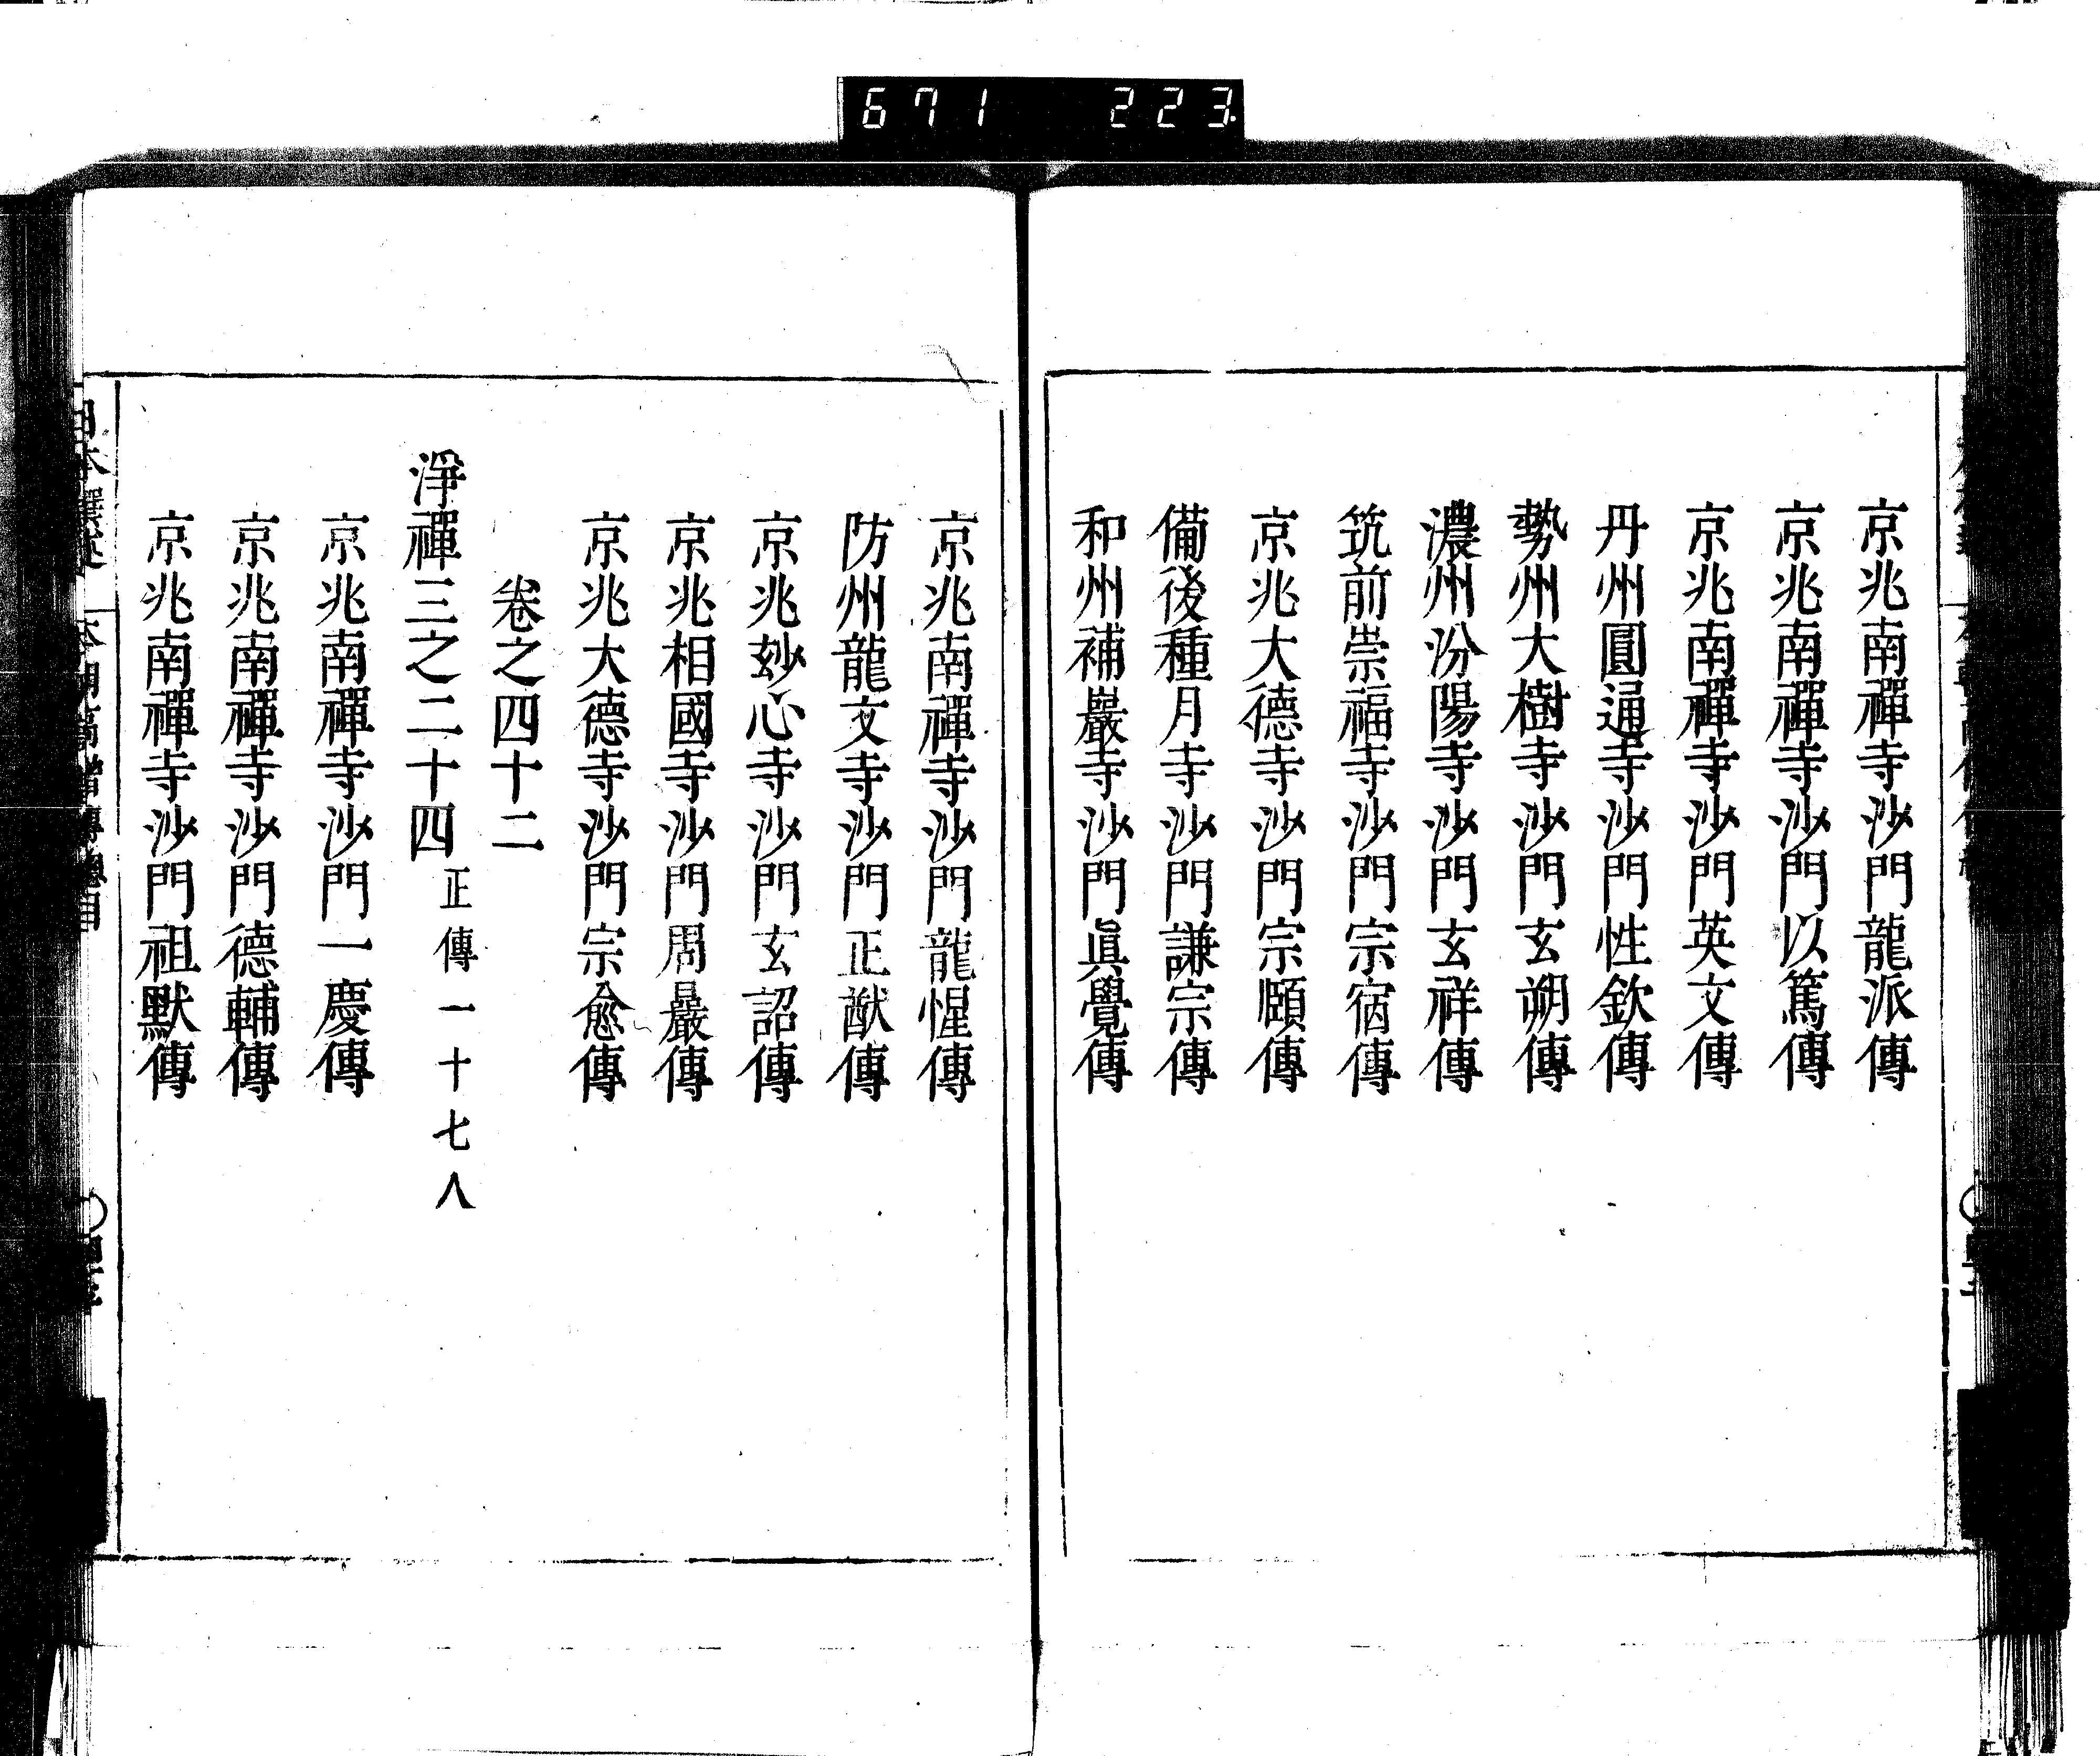 671 223
京兆南禪寺沙門龍派傳
京兆南禪寺沙門以篤傳
京兆南禪寺沙門英文傳
丹州圓通寺沙門性欽傳
勢州大樹寺沙門玄朔傳
濃州汾陽寺沙門玄祥傳
筑前崇福寺沙門宗宿傳
京兆大德寺沙門宗頤傳
備後種月寺沙門謙宗傳
和州補巖寺沙門眞覺傳
京兆南禪寺沙門龍惺傳
防州龍文寺沙門正猷傳
京兆玅心寺沙門玄詔傳
京兆相國寺沙門周嚴傳
京兆大德寺沙門宗愈傳
卷之四十二
淨禪三之二十四 正傳一十七人
京兆南禪寺沙門一慶傳
京兆南禪寺沙門德輔傳
京兆南禪寺沙門祖默傳